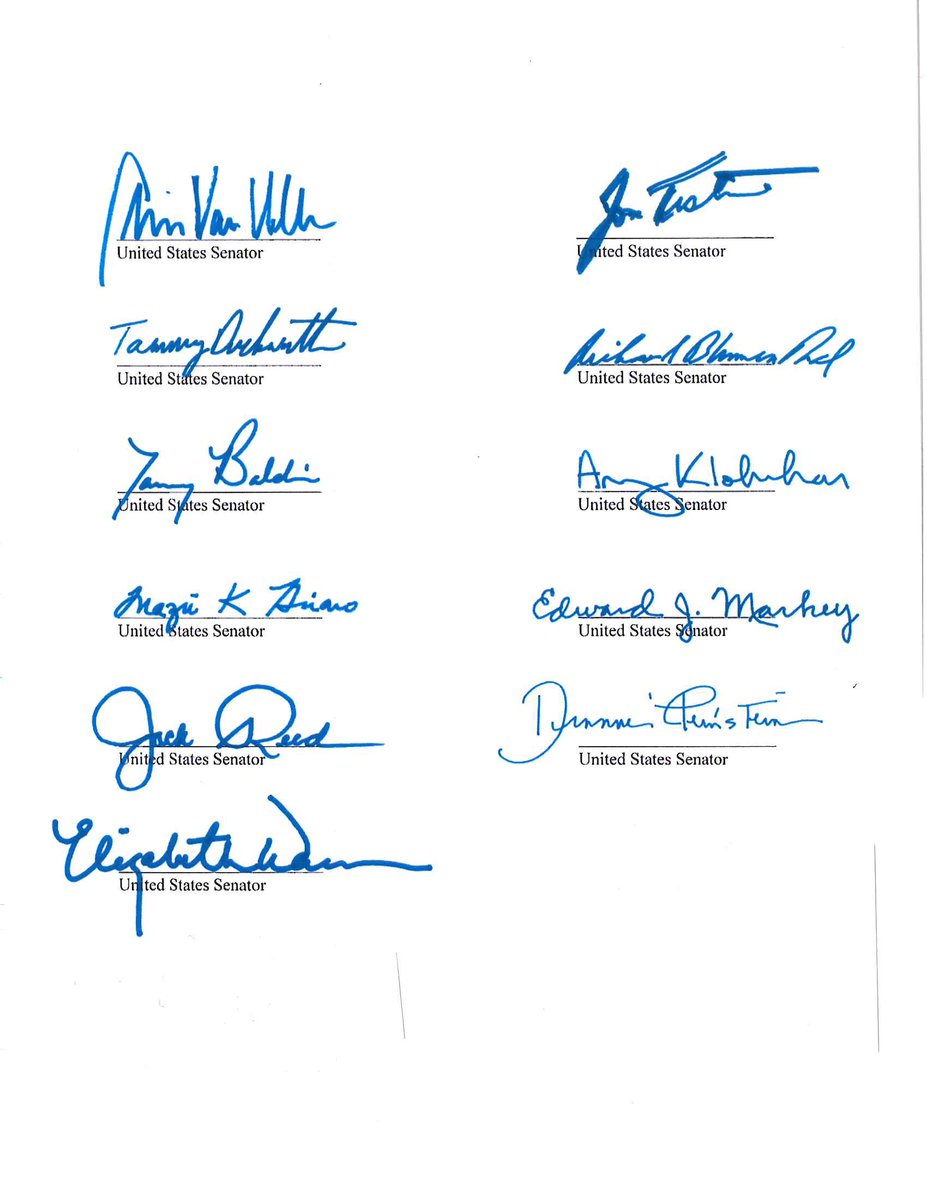 Chris Van Hollen
United States Senator
Jon Tester
United States Senator
Tammy Duckworth
United States Senator
Richard Blumenthal
United States Senator
Tammy Baldwin
United States Senator
Amy Klobuchar
United States Senator
Mazie K Hirono
United States Senator
Edward J. Markey
United States Senator
Jack Reed
United States Senator
Dianne Feinstein
United States Senator
Elizabeth Warren
United States Senator